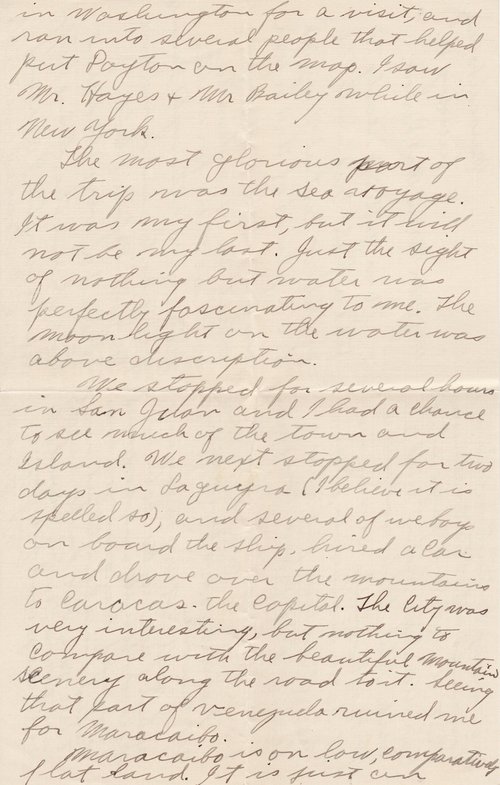 in Washington for a visit, and
ran into several people that helped
put Dayton on the map. I saw
Mr. Hayes & Mr Bailey while in
New York.
The most glorious part of
the trip was the sea voyage.
It was my first, but it will
not be my last. Just the sight
of nothing but water was
perfectly fascinating to me. The
moon light on the water was
above discription.
We stopped for several hours
in San Juan and I had a chance
to see much of the town and
Island. We next stopped for two
days in Laguayra (I believe it is
spelled so), and several of we boys
on board the ship, hired a car
and drove over the mountains
to Caracas. the Capital. The City was
very interesting, but nothing to
compare with the beautiful mountain
scenery along the road to it. Seeing
that part of Venezuela ruined me
for Maracaibo.
Maracaibo is on low, comparatively
flat land. It is just an